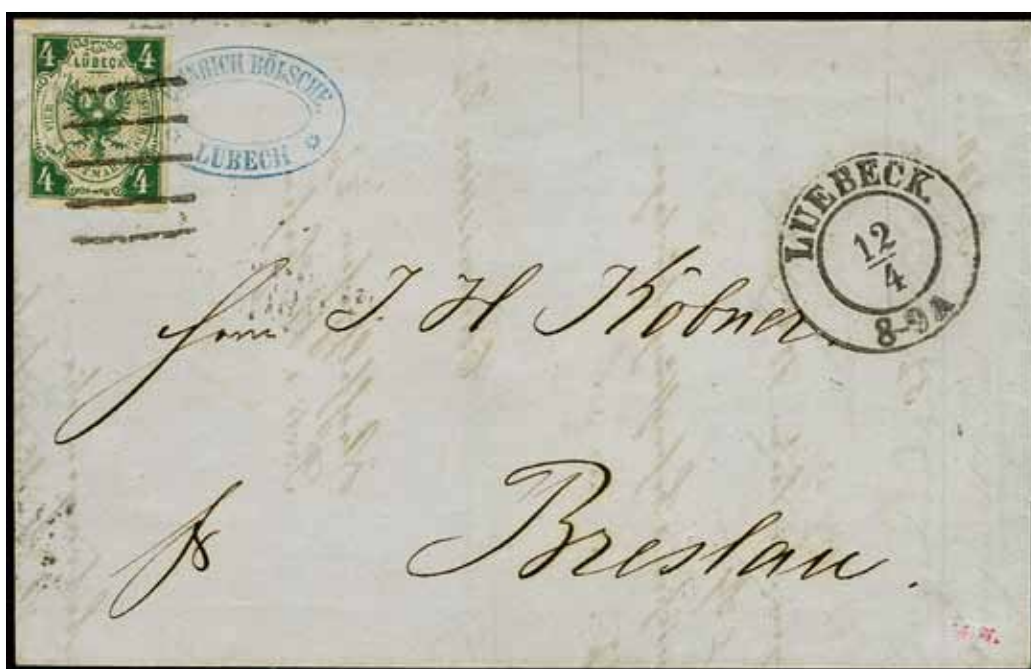 4 4
LÜBECK
VIER
4 4
HEINRICH BÖLSCHE
LÜBECK
LUEBECK
12
4
8-9 A
Herrn J. H Köbner.
Breslau.